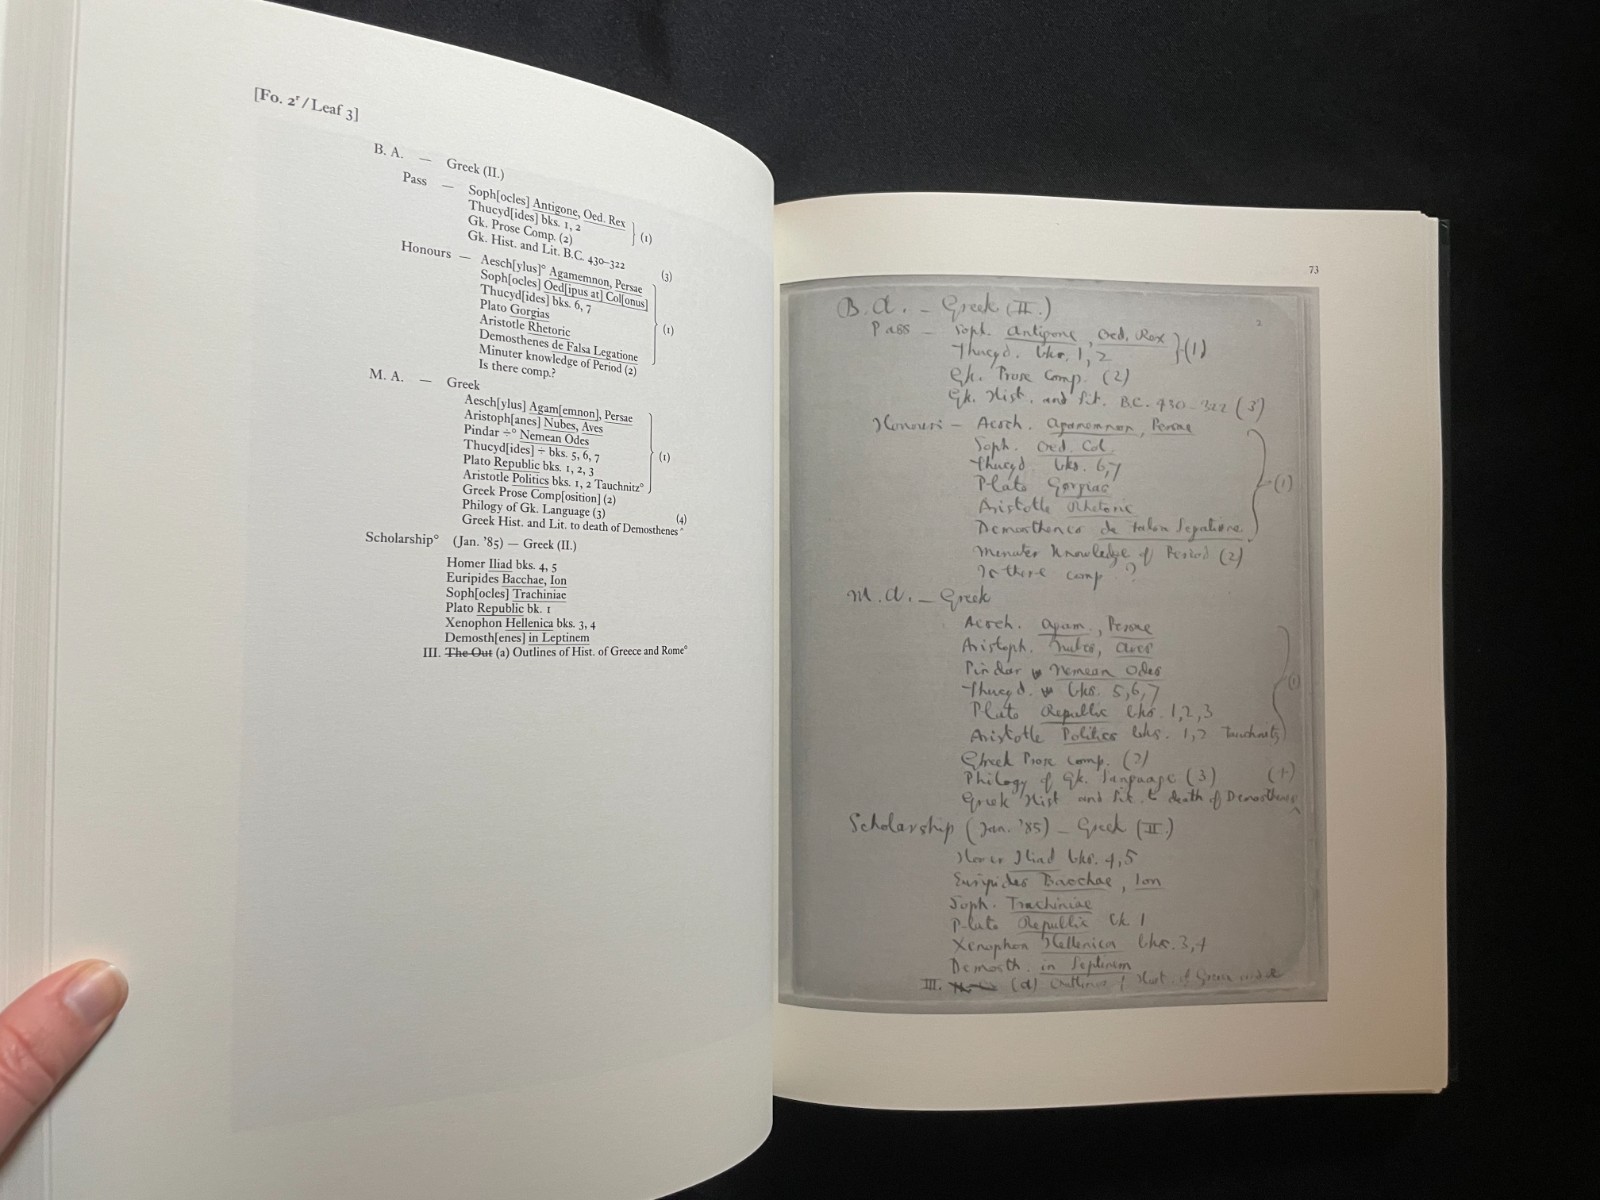 [Fo. 2r/Leaf 3]
B. A. — Greek (II.)
Pass — Soph[ocles] Antigone, Oed. Rex
Thucyd[ides] bks. 1, 2 } (1)
Gk. Prose Comp. (2)
Gk. Hist. and Lit. B.C. 430–322 (3)
Honours — Aesch[ylus]° Agamemnon, Persae
Soph[ocles] Oed[ipus at] Col[onus]
Thucyd[ides] bks. 6, 7
Plato Gorgias } (1)
Aristotle Rhetoric
Demosthenes de Falsa Legatione
Minuter knowledge of Period (2)
Is there comp.?
M. A. — Greek
Aesch[ylus] Agam[emnon], Persae
Aristoph[anes] Nubes, Aves
Pindar ÷° Nemean Odes
Thucyd[ides] ÷ bks. 5, 6, 7 } (1)
Plato Republic bks. 1, 2, 3
Aristotle Politics bks. 1, 2 Tauchnitz°
Greek Prose Comp[osition] (2)
Philogy of Gk. Language (3) (4)
Greek Hist. and Lit. to death of Demosthenes ^
Scholarship° (Jan. '85) — Greek (II.)
Homer Iliad bks. 4, 5
Euripides Bacchae, Ion
Soph[ocles] Trachiniae
Plato Republic bk. 1
Xenophon Hellenica bks. 3, 4
Demosth[enes] in Leptinem
III. The Out (a) Outlines of Hist. of Greece and Rome°
73
2
B.A. — Greek (II.)
Pass — Soph. Antigone, Oed. Rex
Thucyd. bks. 1, 2 } (1)
Gk. Prose Comp. (2)
Gk. Hist. and Lit. B.C. 430–322 (3)
Honours — Aesch. Agamemnon, Persae
Soph. Oed. Col.
Thucyd. bks. 6, 7
Plato Gorgias } (1)
Aristotle Rhetoric
Demosthenes de Falsa Legatione
Minuter knowledge of Period (2)
Is there comp ?
M.A. — Greek
Aesch. Agam., Persae
Aristoph. Nubes, Aves
Pindar ÷ Nemean Odes
Thucyd. ÷ bks. 5, 6, 7 } (1)
Plato Republic bks. 1, 2, 3
Aristotle Politics bks. 1, 2 Tauchnitz
Greek Prose Comp. (2)
Philogy of Gk. Language (3) (4)
Greek Hist and Lit. to death of Demosthenes ^
Scholarship (Jan. '85) — Greek (II.)
Homer Iliad bks. 4, 5
Euripides Bacchae, Ion
Soph. Trachiniae
Plato Republic bk. 1
Xenophon Hellenica bks. 3, 4
Demosth. in Leptinem
III. (a) Outlines of Hist. of Greece and R